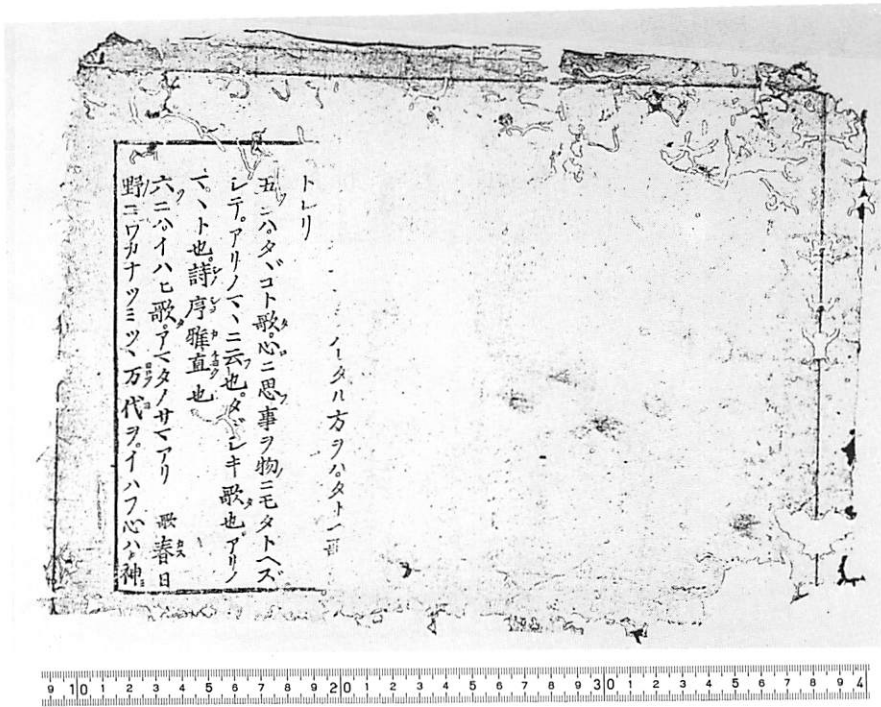 タル方ヲハ。タト
トレリ
五ニハ。タヾコト歌。心ニ思事ヲ物ニモタトヘズ
シテ。アリノマヽニ云也。タヾシキ歌也。アリノ
マヽト也。詩序雅直也
六ニハ。イハヒ歌。アマタノサマアリ 歌春日
野ニワカナツミツヽ万代ヲ。イハフ心ハ。神
9 10 1 2 3 4 5 6 7 8 9 20 1 2 3 4 5 6 7 8 9 30 1 2 3 4 5 6 7 8 9 4